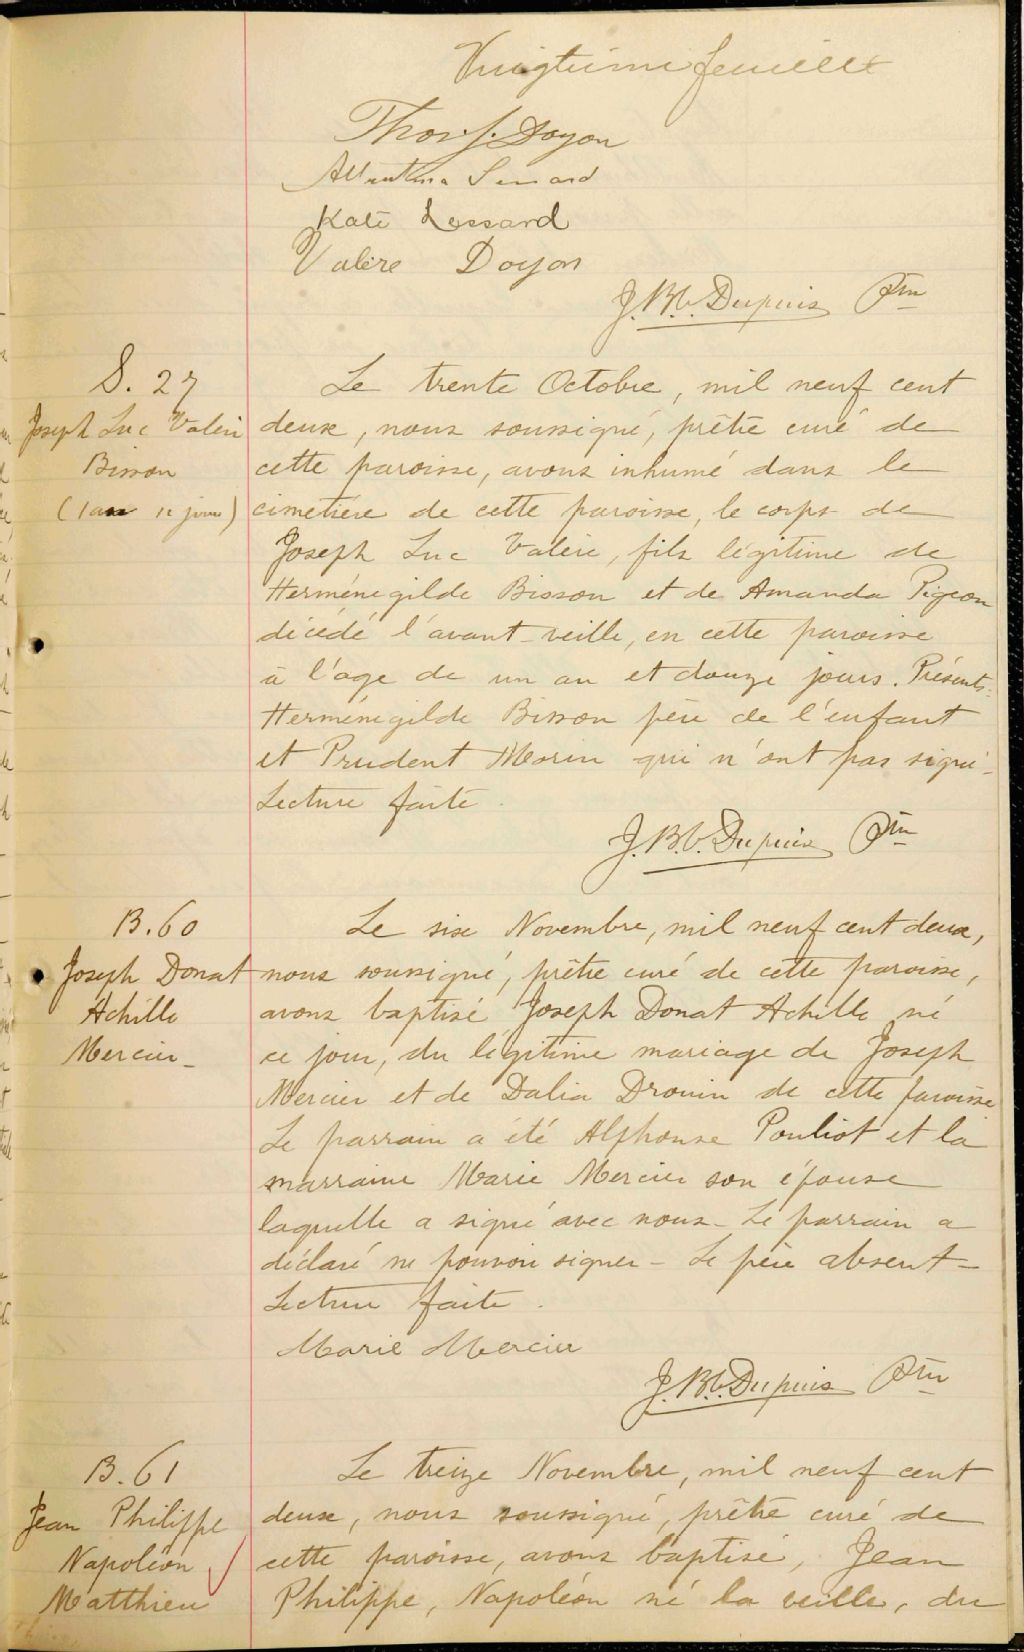 Vingtième feuillet
Thos. J. Doyon
Kate Lessard
Valère Doyon
J. B. C. Dupuis Ptre
S. 27
Joseph Luc Valère
Bisson
(1 an 12 jours)
Le trente Octobre, mil neuf cent
deux, nous soussigné, prêtre curé de
cette paroisse, avons inhumé dans le
cimetière de cette paroisse, le corps de
Joseph Luc Valère, fils légitime de
Herménégilde Bisson et de Amanda Pigeon
décédé l'avant-veille, en cette paroisse
à l'age de un an et douze jours. Présents:
Herménégilde Bisson père de l'enfant
et Prudent Morin qui n'ont pas signé -
Lecture faite.
J. B. C. Dupuis Ptre
B. 60
Joseph Donat
Achille
Mercier -
Le six Novembre, mil neuf cent deux,
nous soussigné, prêtre curé de cette paroisse,
avons baptisé Joseph Donat Achille né
ce jour, du légitime mariage de Joseph
Mercier et de Dalia Drouin de cette paroisse
Le parrain a été Alphonse Pouliot et la
marraine Marie Mercier son épouse
laquelle a signé avec nous - Le parrain a
déclaré ne pouvoir signer - Le père absent -
Lecture faite.
Marie Mercier
J. B. C. Dupuis Ptre
B. 61
Jean Philippe
Napoléon
Matthieu
Le treize Novembre, mil neuf cent
deux, nous soussigné, prêtre curé de
cette paroisse, avons baptisé, Jean
Philippe, Napoléon né la veille, du